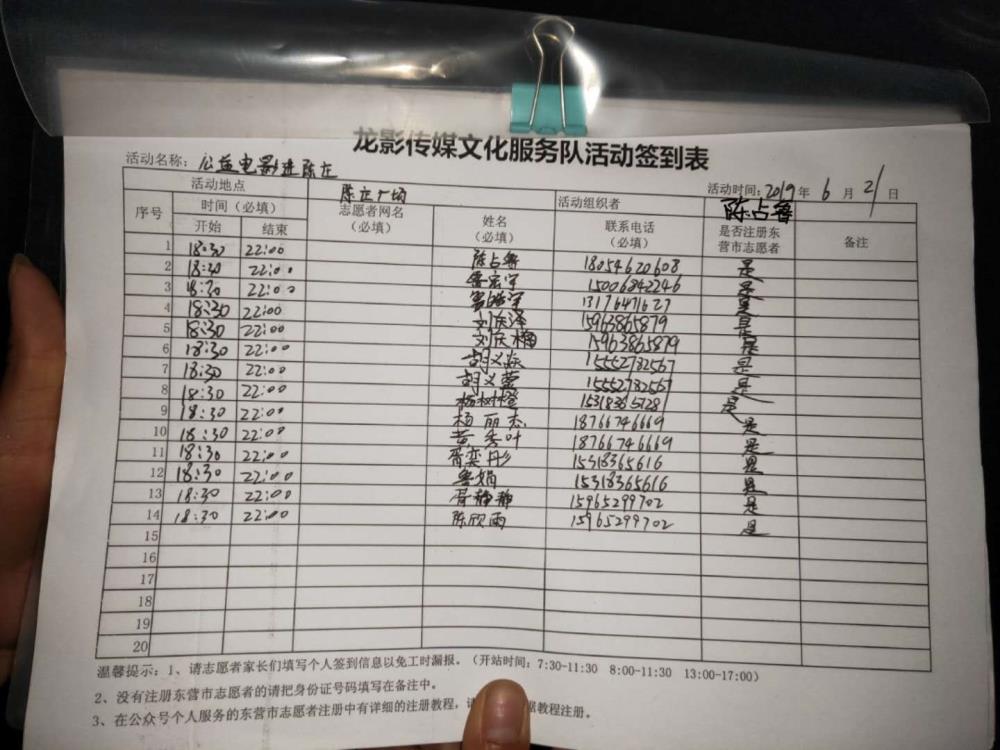 龙影传媒文化服务队活动签到表
活动名称：公益电影进陈庄
活动时间：2019年 6月 21日
活动地点 陈庄广场 活动组织者 陈占鲁
序号 时间（必填） 志愿者网名（必填） 姓名（必填） 联系电话（必填） 是否注册东营市志愿者 备注
开始 结束
1 18:30 22:00 陈占鲁 18054620608 是
2 18:30 22:00 15006842246 是
3 18:30 22:00 13176471627 是
4 18:30 22:00 刘庆泽 15963865879 是
5 18:30 22:00 刘庆楠 15963865879 是
6 18:30 22:00 胡义 15552782567 是
7 18:30 22:00 胡义萱 15552782567 是
8 18:30 22:00 杨树橙 是
9 18:30 22:00 杨丽杰 18766746669 是
10 18:30 22:00 黄秀叶 18766746669 是
11 18:30 22:00 胥奕彤 15318365616 是
12 18:30 22:00 鲁娟 15318365616 是
13 18:30 22:00 胥静静 15965299702 是
14 18:30 22:00 陈欣雨 15965299702 是
15
16
17
18
19
20
温馨提示：1、请志愿者家长们填写个人签到信息以免工时漏报。（开站时间：7:30-11:30 8:00-11:30 13:00-17:00）
2、没有注册东营市志愿者的请把身份证号码填写在备注中。
3、在公众号个人服务的东营市志愿者注册中有详细的注册教程，请 据教程注册。